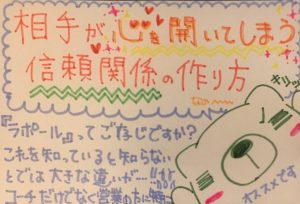 相手が心を開いてしまう
信頼関係の作り方
なの〜
キリッ
『ラポール』ってご存じですか?
これを知っていると知らない
とでは大きな違いが…!!
コーチだけでなく営業の方に
オススメです